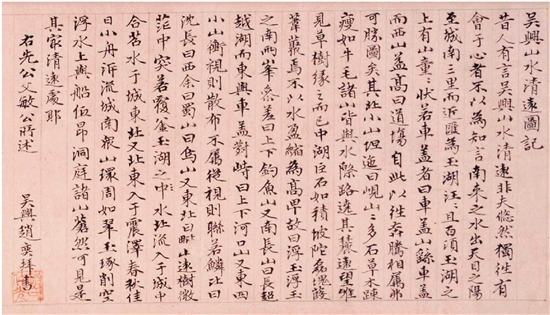 吳興山水清遠圖記
昔人有言吳興山水清遠非夫悠然獨往有
會于心者不以為知言南來之水出天目之陽
至城南三里而近匯為玉湖汪〻且百頃玉湖之
上有山童〻狀若車蓋者曰車蓋山繇車蓋
而西山益高曰道場自此以往奔騰相屬弗
可勝圖矣其北小山坦迤曰峴山〻多石草木疎
瘦如牛毛諸山皆與水際路遶其麓遠望唯
見草樹緣之而已中湖巨石如積坡陀磊磈葭
葦叢焉不以水盈縮為高卑故曰浮玉浮玉
之南兩峯參差曰上下釣魚山又南長山曰長超
越湖而東與車蓋對峙曰上下河口山又東四
小山衡視則散布不屬從視則聯若鱗比曰
沈長曰西余曰蜀山曰烏山又東北曰毗山遠樹微
茫中突若覆釜玉湖之水北流入于城中
合苕水于城東北又北東入于震澤春秋佳
日小舟泝流城南衆山環周如翠玉琢削空
浮水上與船低昂洞庭諸山蒼然可見是
其最清遠處耶
右先公文敏公所述
吳興趙奕拜書